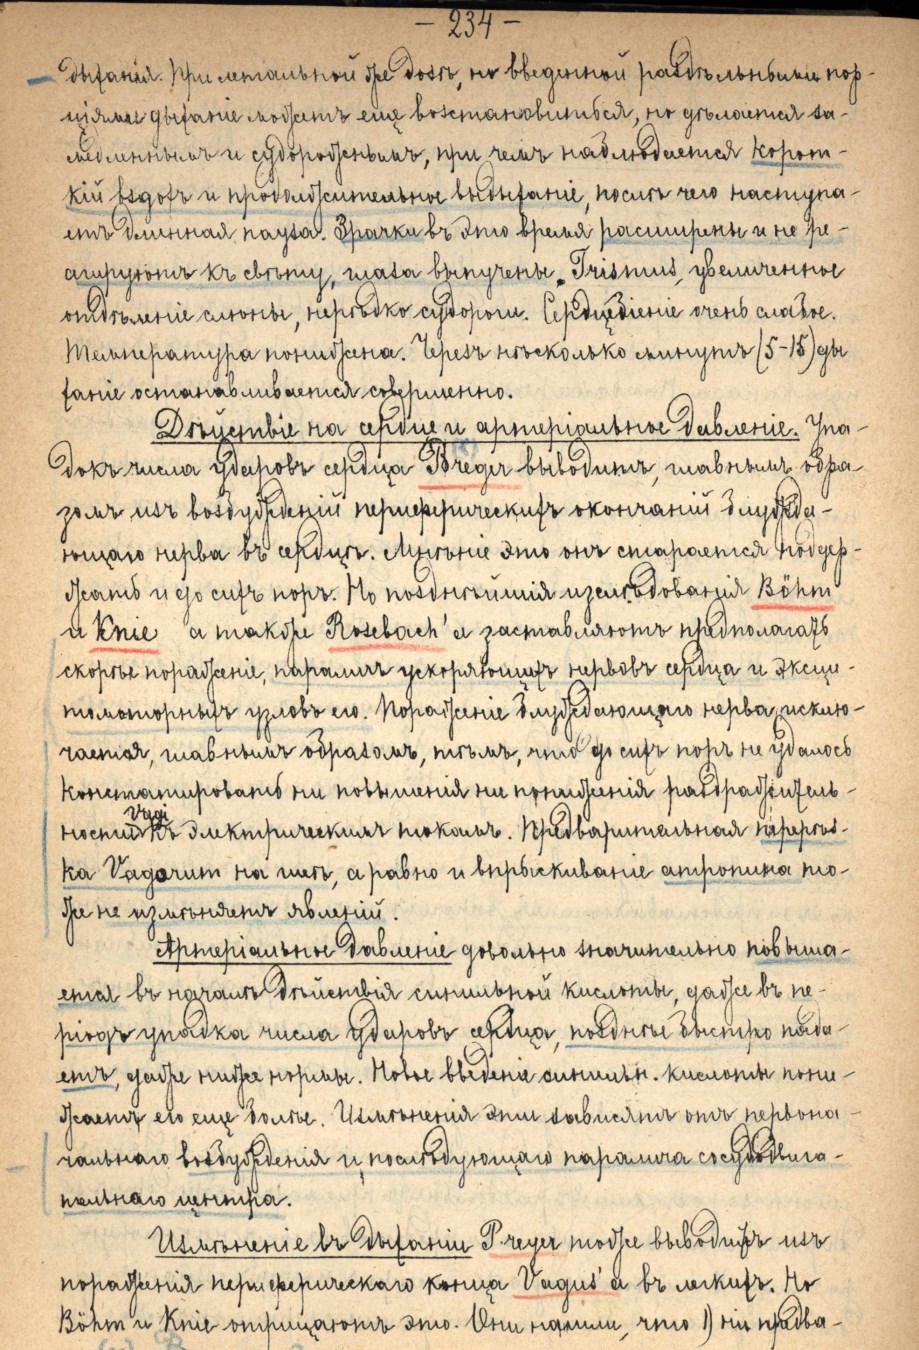 — 234 —
дыханія. При летальной же дозѣ, но введенной раздѣльными пор-
ціями дыханіе можетъ еще возстановиться, но дѣлается за-
медленнымъ и судорожнымъ, при чемъ наблюдается корот-
кій вздохъ и продолжительное выдыханіе, послѣ чего наступа-
етъ длинная пауза. Зрачки въ это время расширены и не ре-
агируютъ къ свѣту, глаза выпучены, Trismus, увеличенное
отдѣленіе слюны, нерѣдко судороги. Сердцебіеніе очень слабое.
Температура понижена. Черезъ нѣсколько минутъ (5-15) ды
ханіе останавливается совершенно.
Дѣйствіе на сердце и артеріальное давленіе. Упа-
докъ числа ударовъ сердца Preger выводитъ, главнымъ обра-
зомъ изъ возбужденій периферическихъ окончаній блужда-
ющаго нерва въ сердцѣ. Мнѣніе это онъ старается поддер-
жать и до сихъ поръ. Но позднѣйшія изслѣдованія Böhm
и Knie а также Rosebach'а заставляютъ предполагать
скорѣе пораженіе, параличъ ускоряющихъ нервовъ сердца и эксци-
томоторныхъ узловъ его. Пораженіе блуждающаго нерва исклю-
чается, главнымъ образомъ, тѣмъ, что до сихъ поръ не удалось
констатировать ни повышенія ни пониженія раздражитель-
ности Vagi къ электрическимъ токамъ. Предварительная перерѣз-
ка Vagorum на шеѣ, а равно и впрыскиваніе атропина то-
же не измѣняетъ явленій.
Артеріальное давленіе довольно значительно повыша-
ется въ началѣ дѣйствія синильной кислоты, даже въ пе-
ріодъ упадка числа ударовъ сердца, позднѣе быстро пада-
етъ, даже ниже нормы. Новое введеніе синильн. кислоты пони-
жаетъ его еще болѣе. Измѣненія эти зависятъ отъ первона-
чальнаго возбужденія и послѣдующаго паралича сосудодвига-
тельнаго центра.
Измѣненіе въ дыханіи Preyer тоже выводитъ изъ
пораженія периферическаго конца Vagus'а въ легкихъ. Но
Böhm и Knie отрицаютъ это. Они нашли, что 1) ни предва-